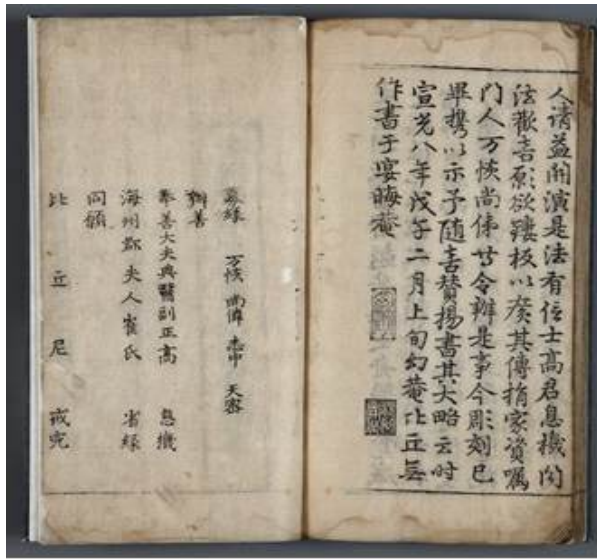 人請益開演是法有信士高君息機聞
法歡喜願欲鋟板以廣其傳捐家資囑
門人万恢尚偉廿令辦是事今彫刻已
畢携以示予随喜賛揚書其大略云时
宣光八年戊午二月上旬幻菴比丘無
作書于宴晦菴
募緣 万恢 尚偉 志中 天密
辦善
奉善大夫典醫副正高 息機
海州郡夫人崔氏 省緣
同願
比丘尼 戒完